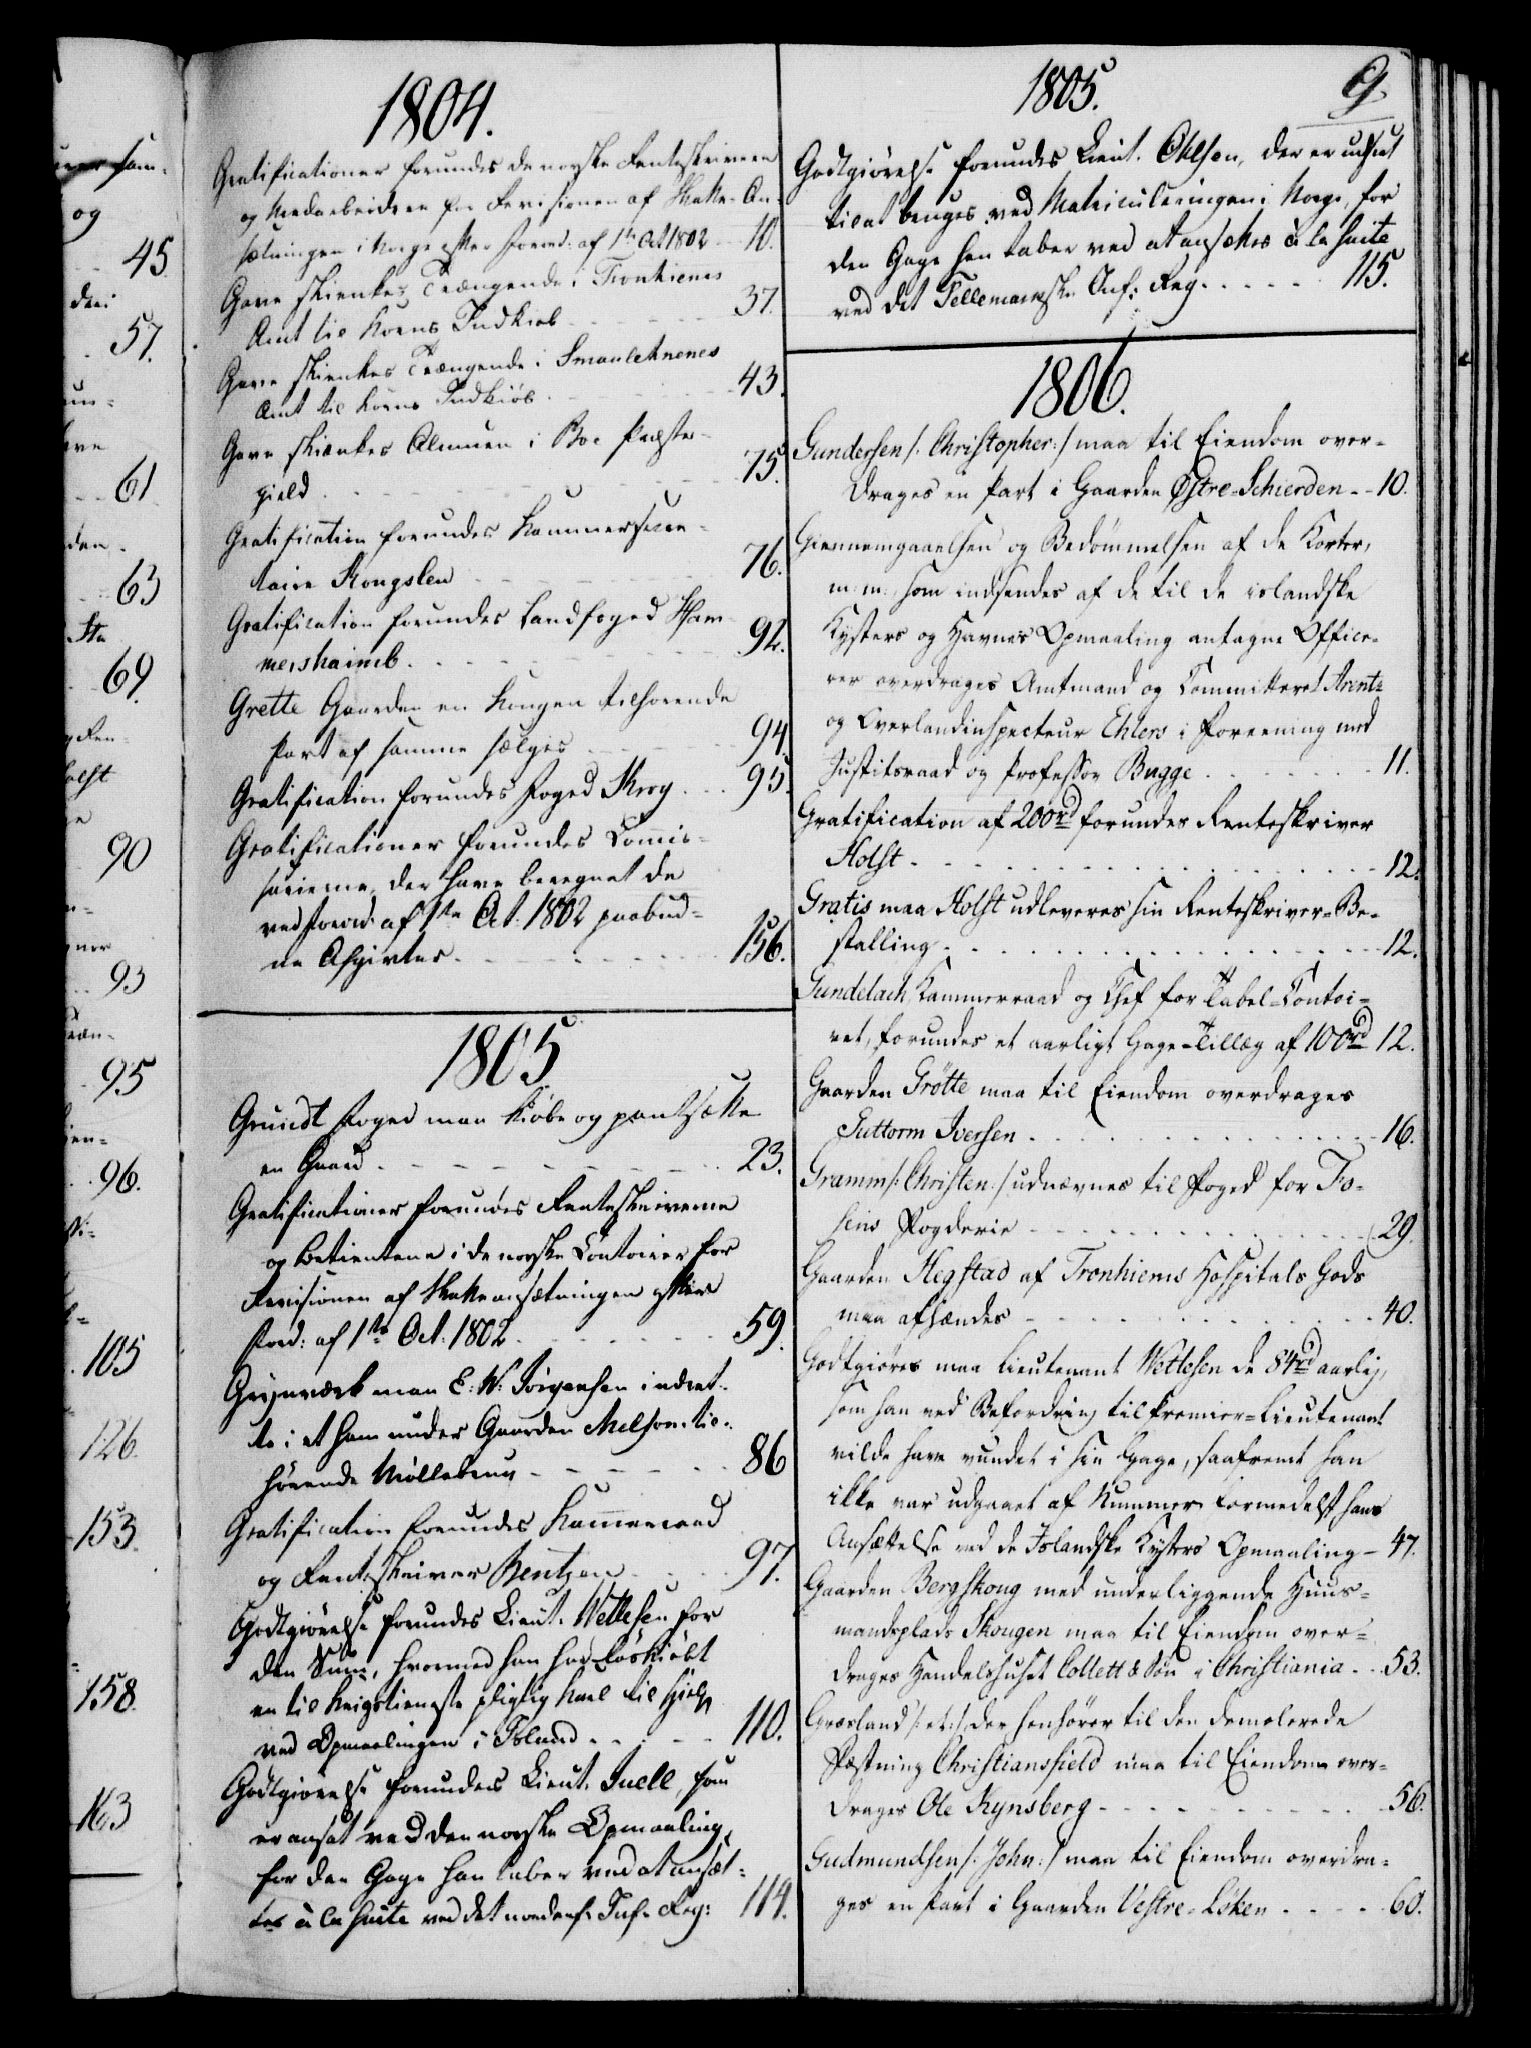 som-
og
45.
57.
61
63
69.
holst
90
93
95
96.
105
126.
153.
158.
163
1804.
Gratificationer forundes de norske Renteskrivere
og Medarbeidere for Revisionen af Skatte-An-
sætningen i Norge efter Forord: af 1te Oct 1802 10.
Gave skienkes Trængende i Tronhiems
Amt til Korns Indkiøb 37.
Gave skienkes Trængende i Smaalehnenes
Amt til Korns Indkiøb 43.
Gave skienkes Almuen i Boe Præste-
gield 75.
Gratification forundes Kammersecre-
taire Kongslew 76.
Gratification forundes Landfoged Ham-
mershaimb 92.
Grette Gaarden en Kongen tilhørende
Part af samme sælges 94.
Gratification forundes Foged Krog 95.
Gratificationer forundes Com̄is-
sairerne, der have beregnet de
ved Forord: af 1te Oct. 1802 paabud-
ne Afgivter 156.
1805
Grundt Foged maa kiøbe og pantsætte
en Gaard 23.
Gratificationer forundes Renteskriverne
og Betientene i de norske Contoirer for
Revisionen af Skatteansætningen efter
Ford: af 1te Oct: 1802 59.
Grynværk maa E: W: Jörgensen indret-
te i et ham under Gaarden Melsom til-
hørende Møllebrug 86
Gratification forundes Kammerraad
og Renteskriver Bentzen 97.
Godtgiørelse forundes Lieut. Wetlesen for
den Sum, hvormed han har løskiøbt
en til Krigstieneste pligtig Karl til Hielp
ved Opmaalingen i Island 110.
Godtgiørelse forundes Lieut. Juell, som
er ansat ved den norske Opmaaling,
for den Gage han taber ved at ansæt-
tes à la Suite ved det nordenf. Inf. Reg: 114.
1805. G.
Godtgiörelse forundes Lieut. Ohlsen, der er udseet
til at bruges ved Matriculeringen i Norge, for
den Gage han taber ved at ansættes à la Suite
ved det Tellemarkske Inf: Reg 115.
1806.
Gundersen /: Christopher :/ maa til Eiendom over-
drages en Part i Gaarden Østre-Schierden 10.
Giennemgaaelsen og Bedømmelsen af de Korter,
m:m:, som indsendes af de til de islandske
Kysters og Havnes Opmaaling antagne Office-
rer overdrages Amtmand og Committeret Arentz
og Overlandinspecteur Ehlers i Foreening med
Justitsraad og Professor Bugge 11.
Gratification af 200rd forundes Renteskriver
Holst 12.
Gratis maa Holst udleveres sin Renteskriver-Be-
stalling 12.
Gundelach, Kammerraad og Chef for Tabel-Contoi-
ret, forundes et aarligt Gage-Tillæg af 100rd 12.
Gaarden Grötte maa til Eiendom overdrages
Guttorm Iversen 16.
Gramm /: Christen :/ udnævnes til Foged for Fo-
sens Fogderie 29.
Gaarden Hegstad af Tronhiems Hospitals Gods
maa afhændes 40.
Godtgiøres maa Lieutenant Wetlesen de 84rd aarlig,
som han ved Befordring til Premier-Lieutenant
vilde have vundet i sin Gage, saafremt han
ikke var udgaaet af Nummer formedelst hans
Ansættelse ved de Islandske Kysters Opmaaling 47.
Gaarden Bergskoug med underliggende Huus-
mandsplads Skougen maa til Eiendom over-
drages Handelshuset Collett & Søn i Christiania 53.
Græsland /: et :/ der henhører til den demolerede
Fæstning Christiansfield maa til Eiendom over-
drages Ole Rynsberg 56.
Gudmundsen /: John :/ maa til Eiendom overdra-
ges en Part i Gaarden Vestre-Löken 60.